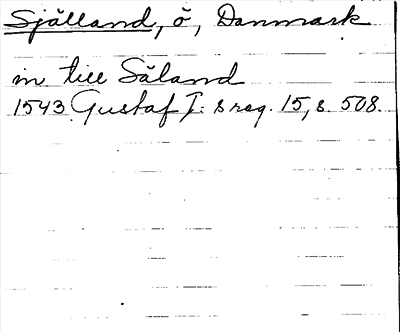 Själland, ö, Danmark
in till Säland
1543 Gustaf I:s reg. 15, s. 508.